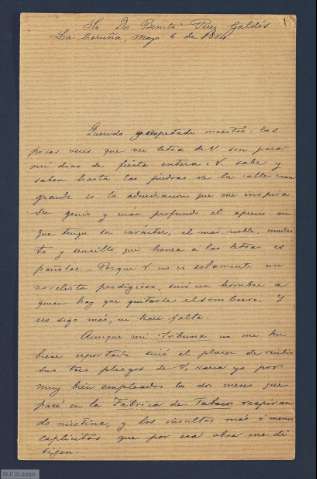 Sr. Dn. Benito Pérez Galdós
La Coruña, Mayo 6 de 1884
Querido y respetado maestro: las
pocas veces que veo letra de V. son para
mí días de fiesta entera: V. sabe y
saben hasta las piedras de la calle cuan
grande es la admiración que me inspira
su genio y cuan profundo el aprecio en
que tengo su carácter, el más noble, modes
to y sencillo que honra a las letras es
pañolas. Porque V. no es solamente un
novelista prodigioso, sino un hombre a
quien hay que quitarle el sombrero. Y
no digo más, ni hace falta.
Aunque mi Tribuna no me hu
biese reportado sino el placer de recibir
sus tres pliegos de V., daria yo por
muy bien empleados los dos meses que
pasé en la Fábrica de Tabacos respiran
do nicotina, y los insultos más o menos
explícitos que por esa obra me di
rigen.